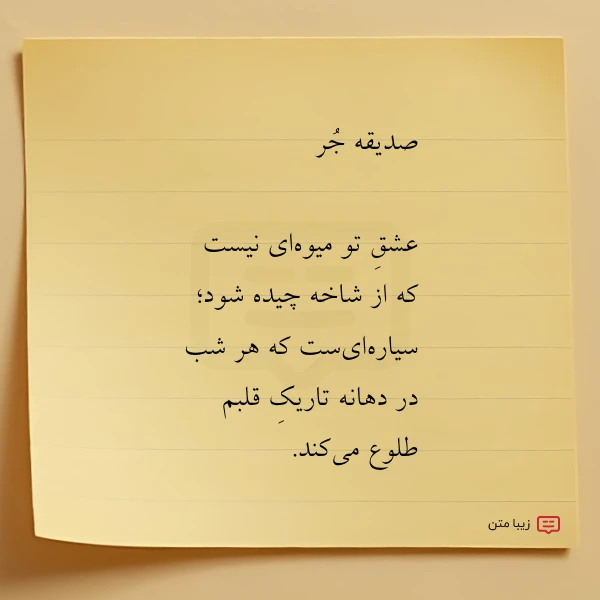 صدیقه جُر
عشقِ تو میوه‌ای نیست
که از شاخه چیده شود؛
سیاره‌ای‌ست که هر شب
در دهانه تاریکِ قلبم
طلوع می‌کند.
زیبا متن